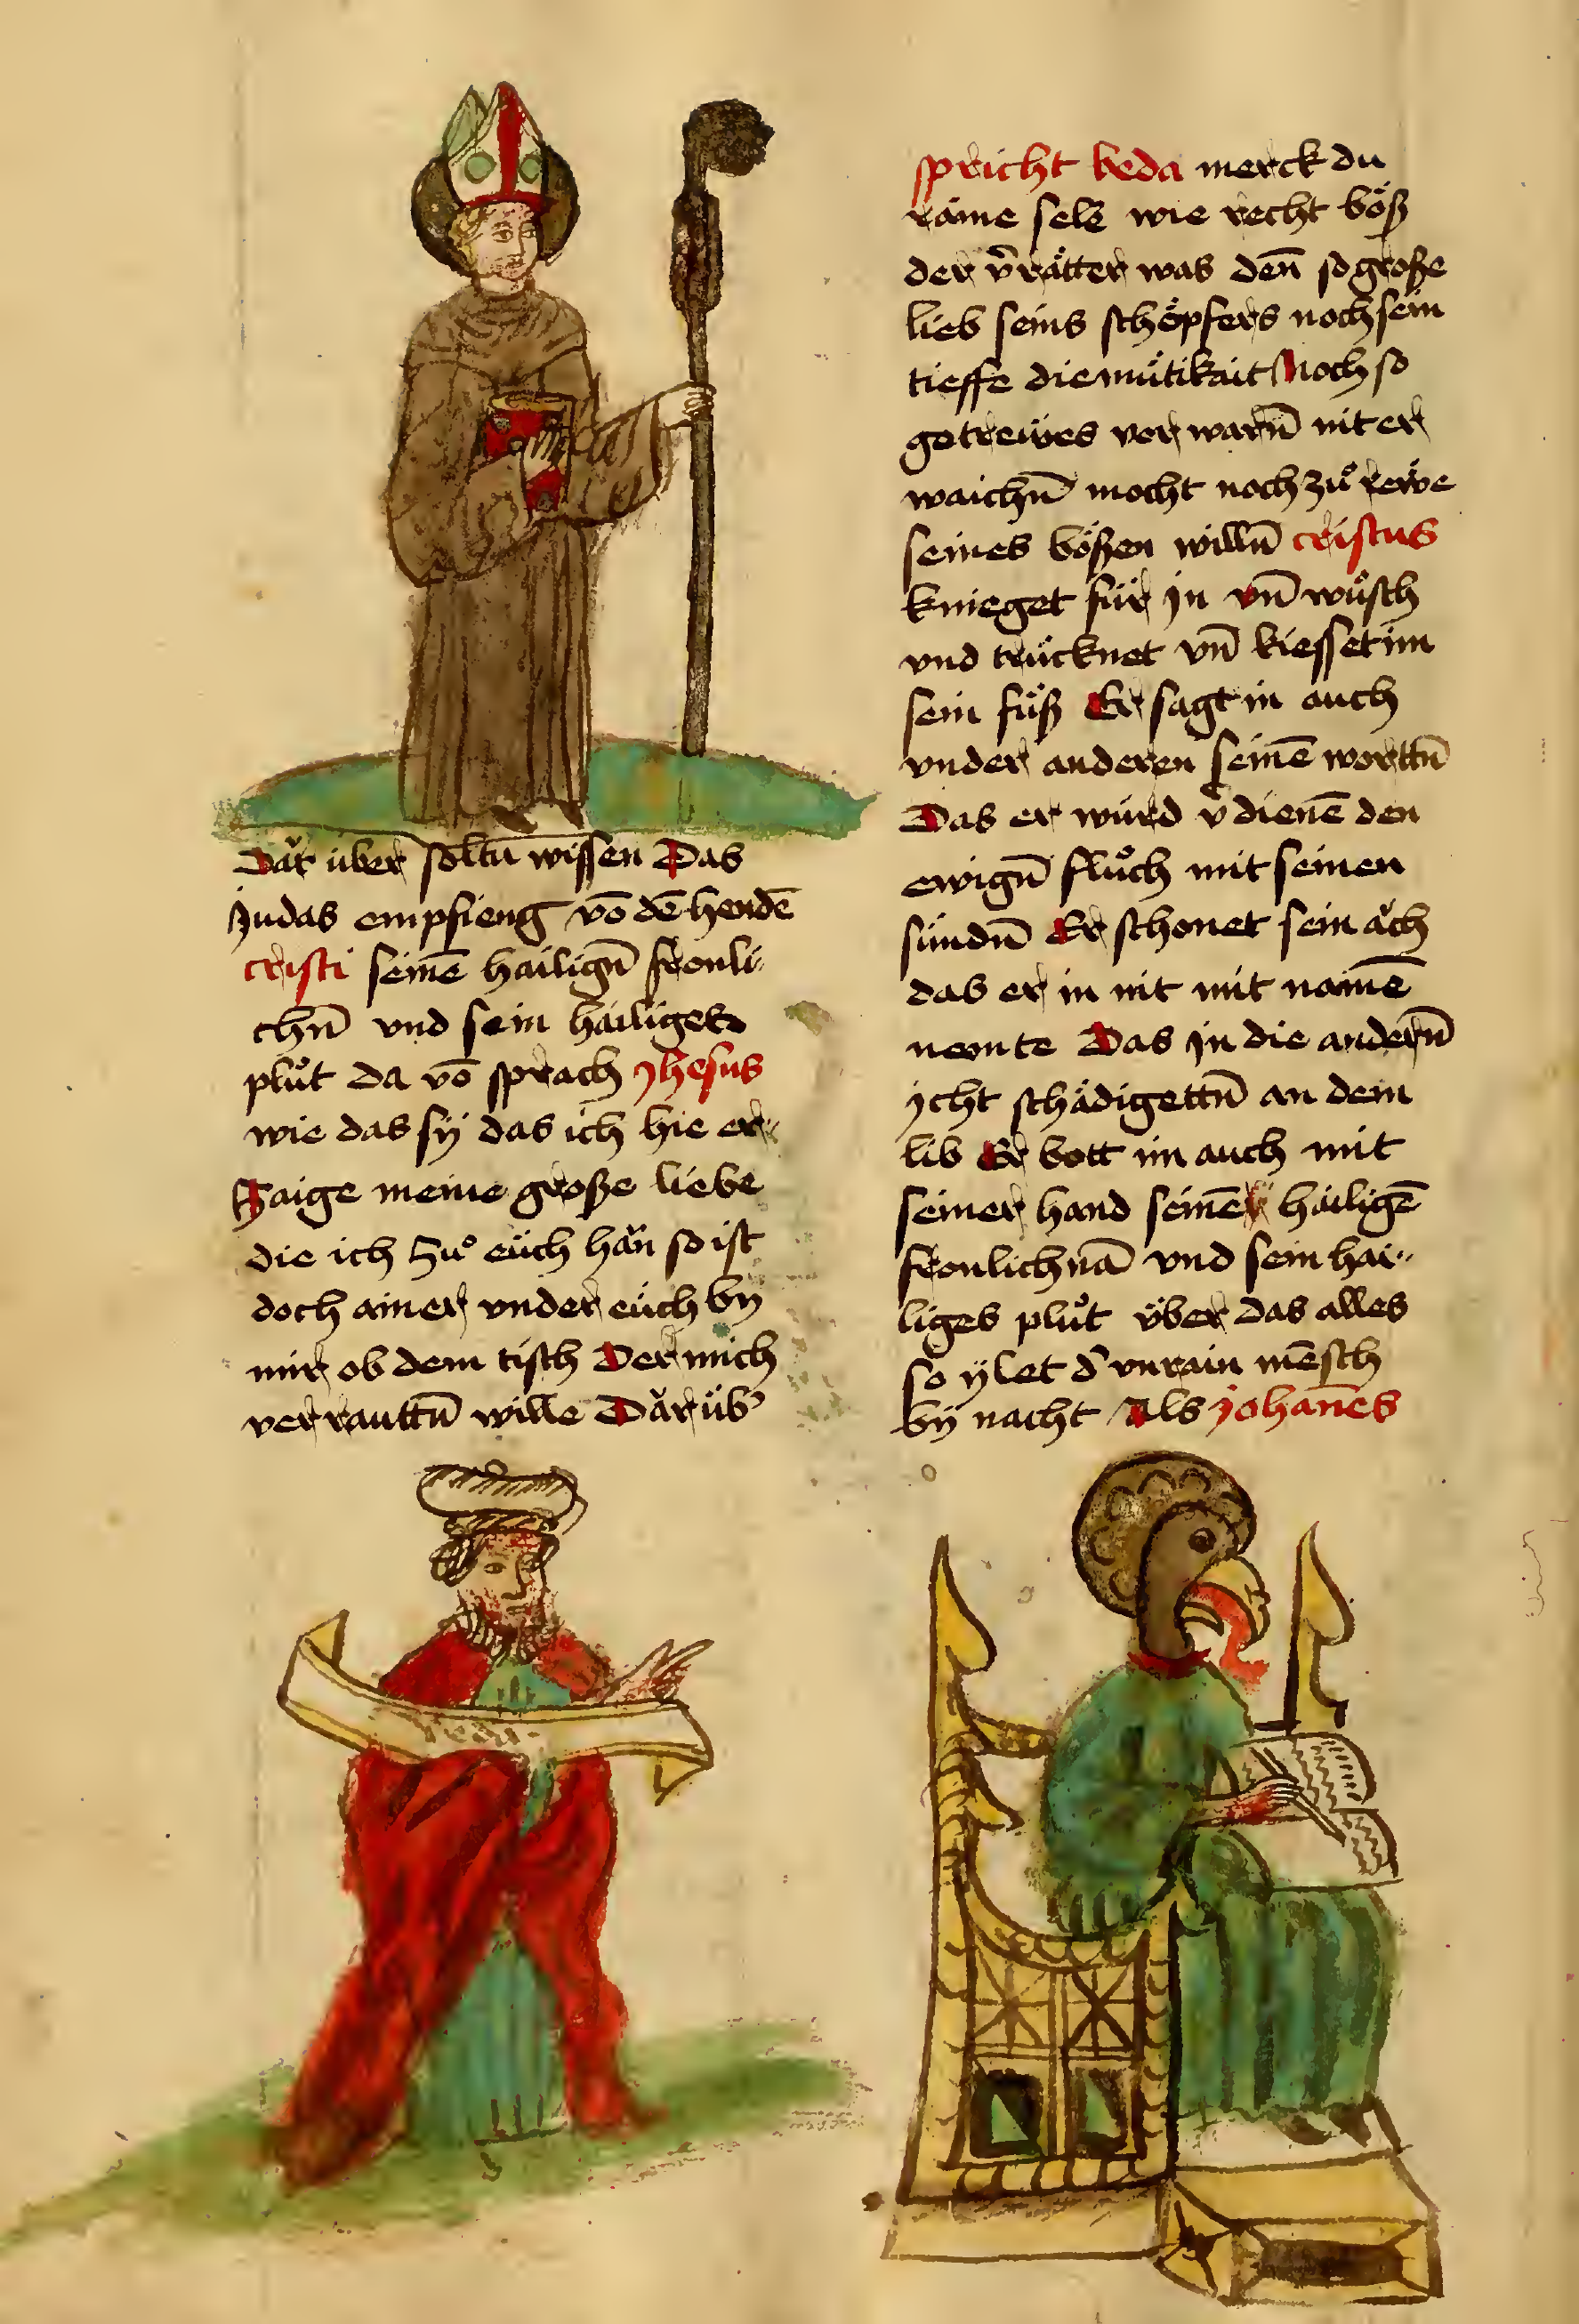 Dar̈ über soltū wissen Das
Judas empfieng võ dē hendē
cristi seinē hailigñ fronli
chñ vnd sein hailiges
plůt da võ sprach Jhesus
wie das sÿ das ich hie er
Zaige meine große liebe
die ich zů eüch hän so ist
doch ainer vnder eüch by
mir ob dem tisch Der mich
verrauttñ wille Där üb
beda
spricht beda merck du
raine sele wie recht böß
der v̄rätter was deñ so große
lieb seins schöpfers noch sein
tieffe diemütikait Noch so
getrewes vor warñ nit er
waichñ mocht noch zů rewe
seines bößen willñ cristus
knieget für jn vñ wůsch
vnd trücknet vñ kiesset im
sein füß Er sagt in auch
vnder anderen seinē worttñ
Das er würd v̄dienē den
ewigñ flůch mit seinen
sündñ Er schonet sein äch
das er in nit mit namē
nemte Das jn die anderñ
ycht schädigettñ an dem
lib Er bott im auch mit
seiner hand seinē hailigē
fronlichnā vnd sein hai
liges plůt über das alles
so ÿlet d' vnrain mēsch
bÿ nacht Als johanēs